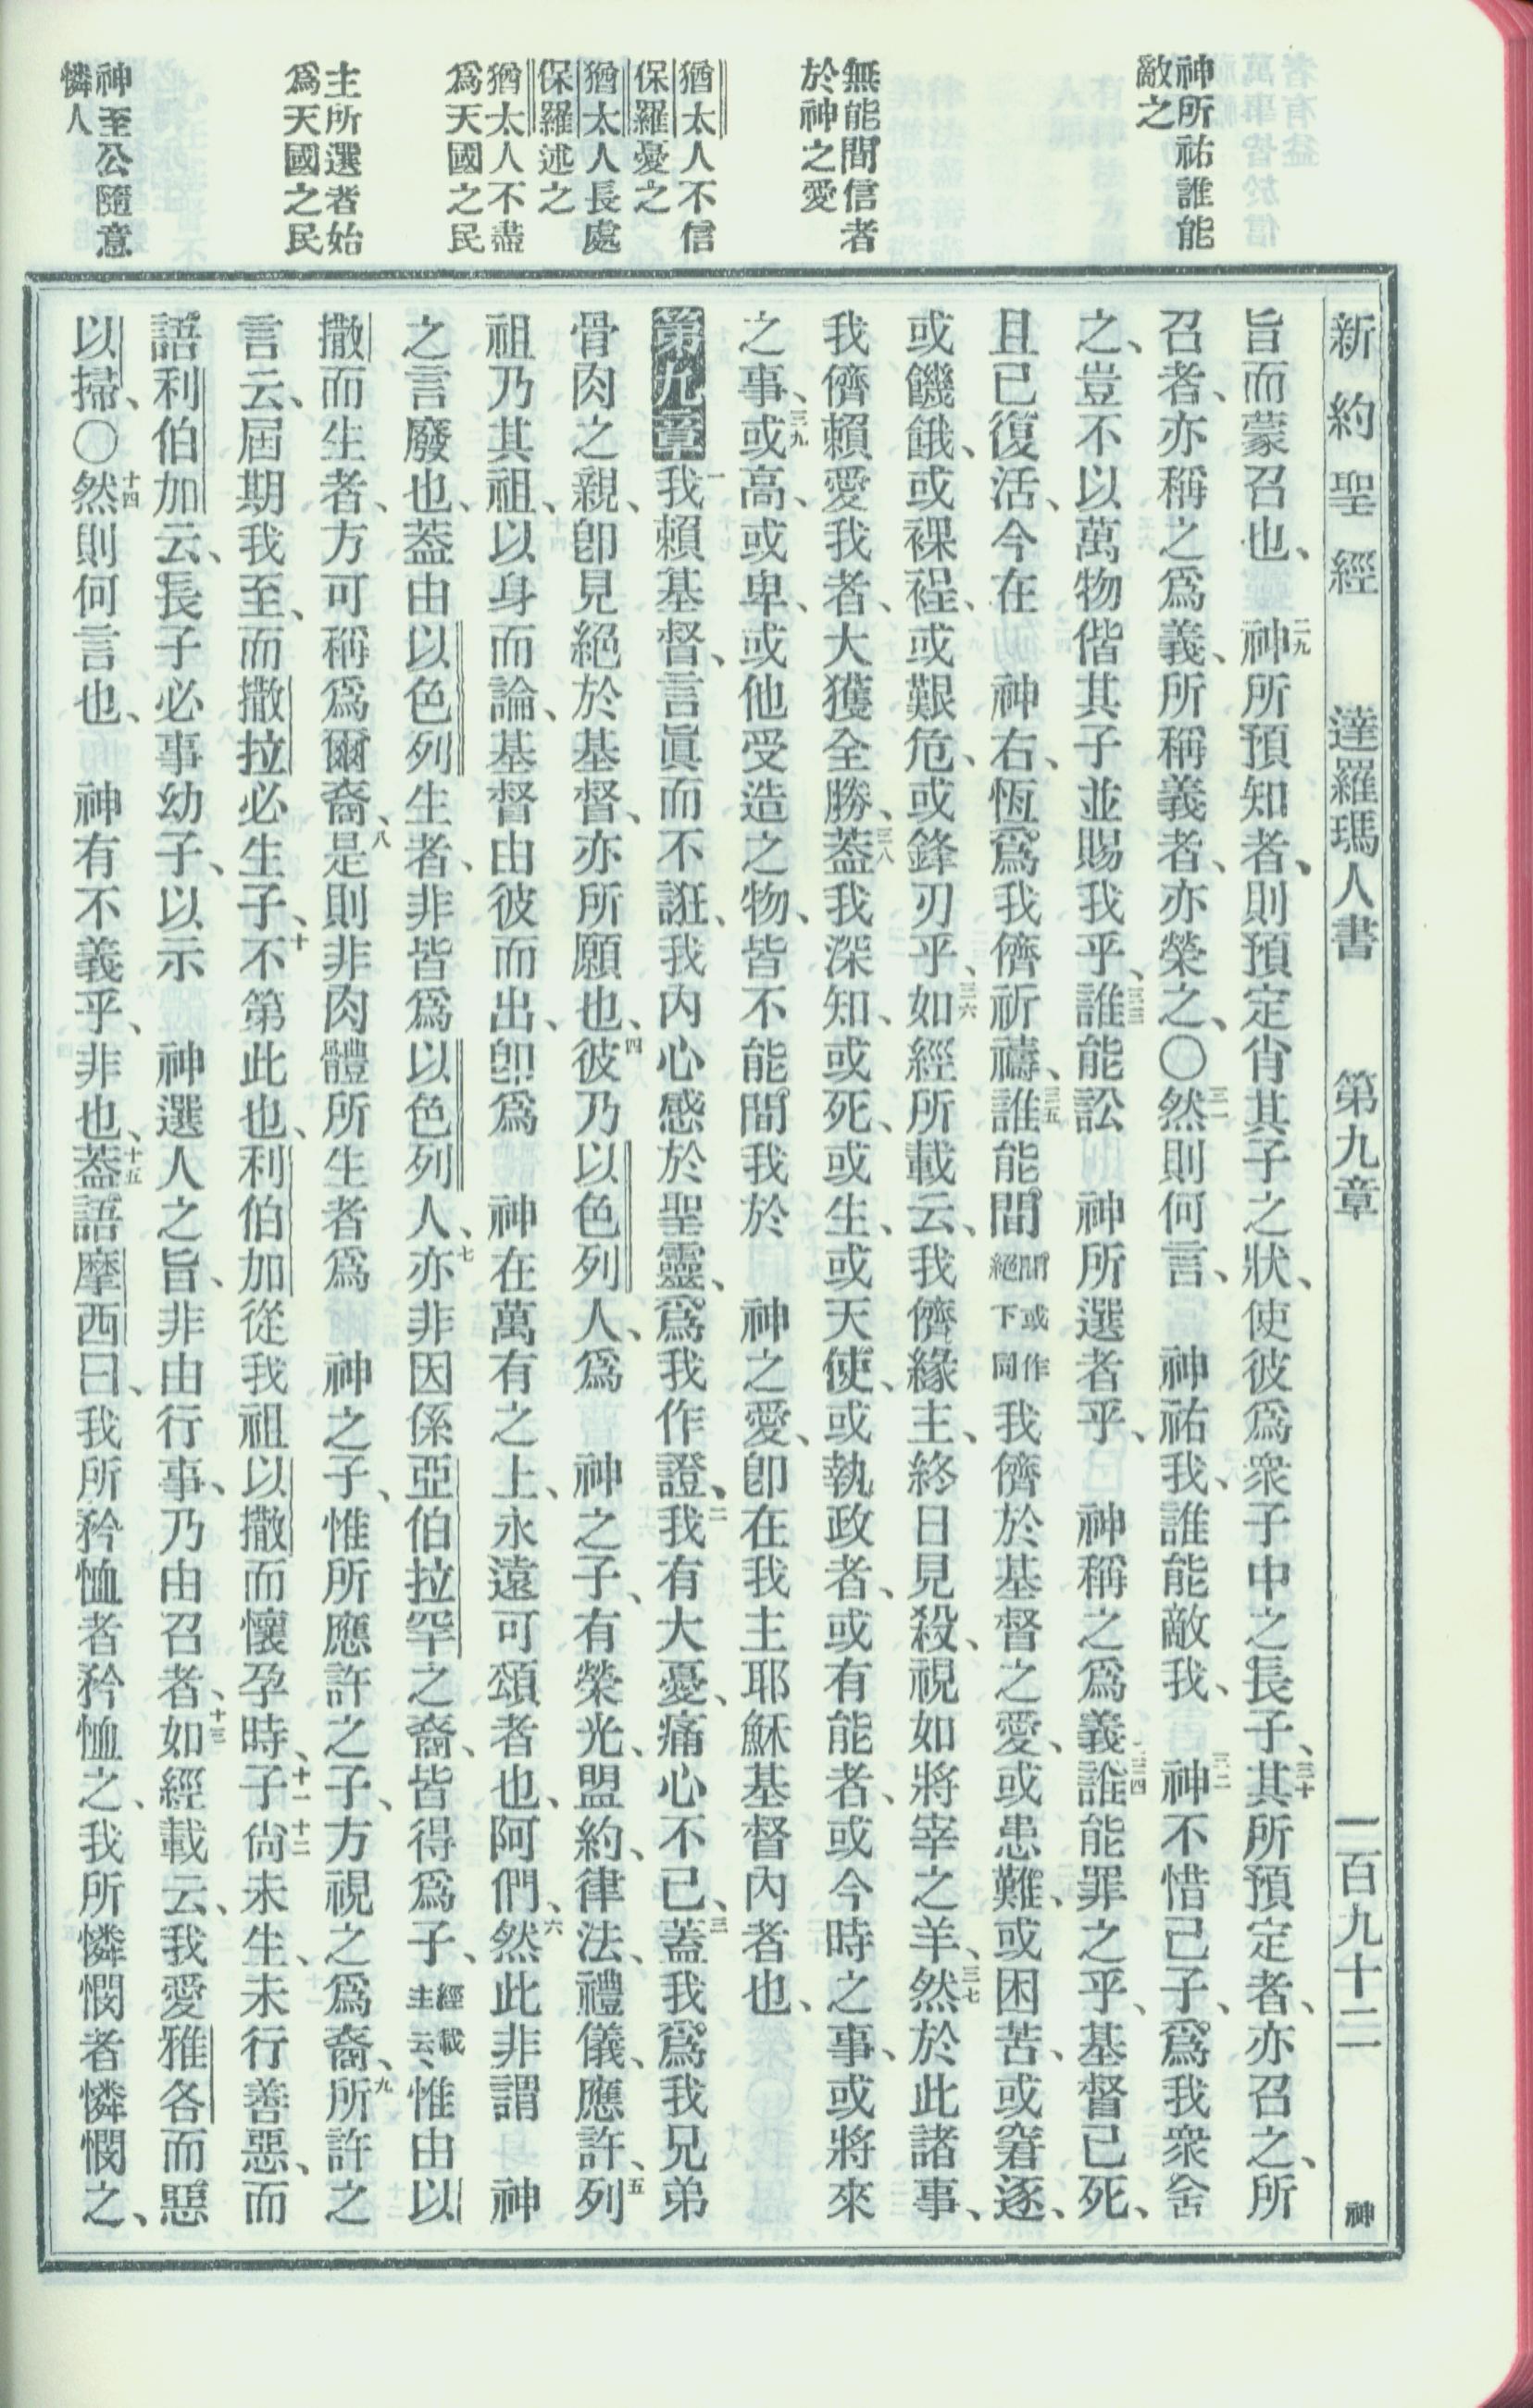 神所祐誰能
敵之
無能間信者
於神之愛
猶太人不信
保羅憂之
猶太人長處
保羅述之
猶太人不盡
爲天國之民
主所選者始
爲天國之民
神至公隨意
憐人
新約聖經　達羅瑪人書　第九章　一百九十二　神
旨而蒙召也、二九神所預知者、則預定肖其子之狀、使彼爲衆子中之長子、三十其所預定者、亦召之、所
召者、亦稱之爲義、所稱義者、亦榮之、〇三一然則何言、　神祐我、誰能敵我、三二神不惜己子、爲我衆舍
之、豈不以萬物偕其子並賜我乎、三三誰能訟　神所選者乎、　神稱之爲義、三四誰能罪之乎、基督已死、
且已復活、今在　神右、恆爲我儕祈禱、三五誰能間間或作絕下同我儕於基督之愛、或患難、或困苦、或窘逐、
或饑餓、或裸裎、或艱危、或鋒刃乎、三六如經所載云、我儕緣主、終日見殺、視如將宰之羊、三七然於此諸事、
我儕賴愛我者、大獲全勝、三八蓋我深知、或死、或生、或天使、或執政者、或有能者、或今時之事、或將來
之事、三九或高、或卑、或他受造之物、皆不能間我於　神之愛、卽在我主耶穌基督內者也、
第九章一我賴基督、言眞而不誑、我內心感於聖靈、爲我作證、二我有大憂、痛心不已、三蓋我爲我兄弟
骨肉之親、卽見絕於基督、亦所願也、四彼乃以色列人、爲　神之子、有榮光、盟約、律法、禮儀、應許、五列
祖乃其祖、以身而論、基督由彼而出、卽爲　神在萬有之上、永遠可頌者也、阿們、六然此非謂　神
之言廢也、蓋由以色列生者、非皆爲以色列人、七亦非因係亞伯拉罕之裔、皆得爲子、經載主云、惟由以
撒而生者、方可稱爲爾裔、八是則非肉體所生者爲　神之子、惟所應許之子、方視之爲裔、九所許之
言云、屆期我至、而撒拉必生子、十不第此也、利伯加從我祖以撒而懷孕時、十一子十二尙未生、未行善惡、而
語利伯加云、長子必事幼子、以示　神選人之旨、非由行事、乃由召者、十三如經載云、我愛雅各而惡
以掃、〇十四然則何言也、　神有不義乎、非也、十五蓋語摩西曰、我所矜恤者矜恤之、我所憐憫者憐憫之、